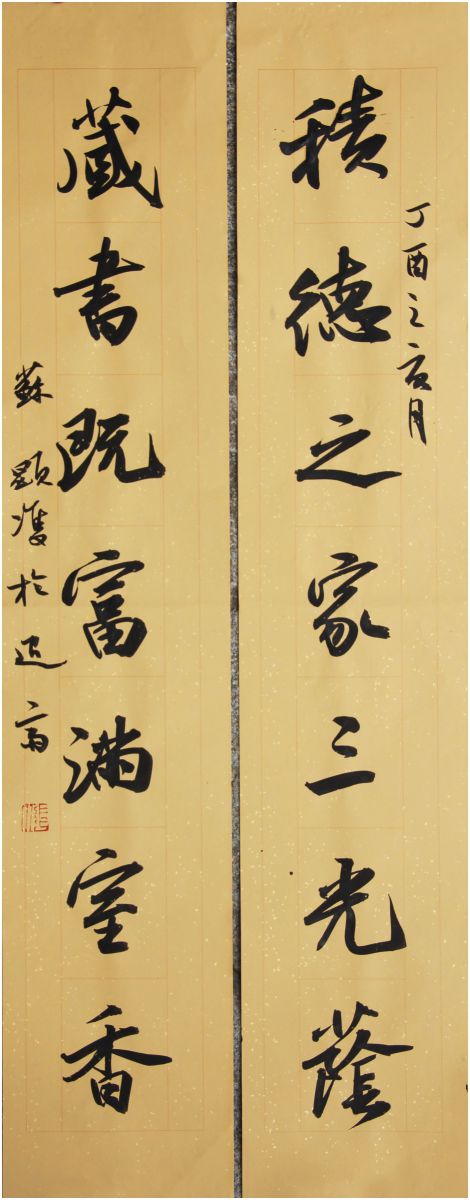 丁酉之亥月
積德之家三光蔭
藏書既富滿室香
蘇顯隻於迟齋